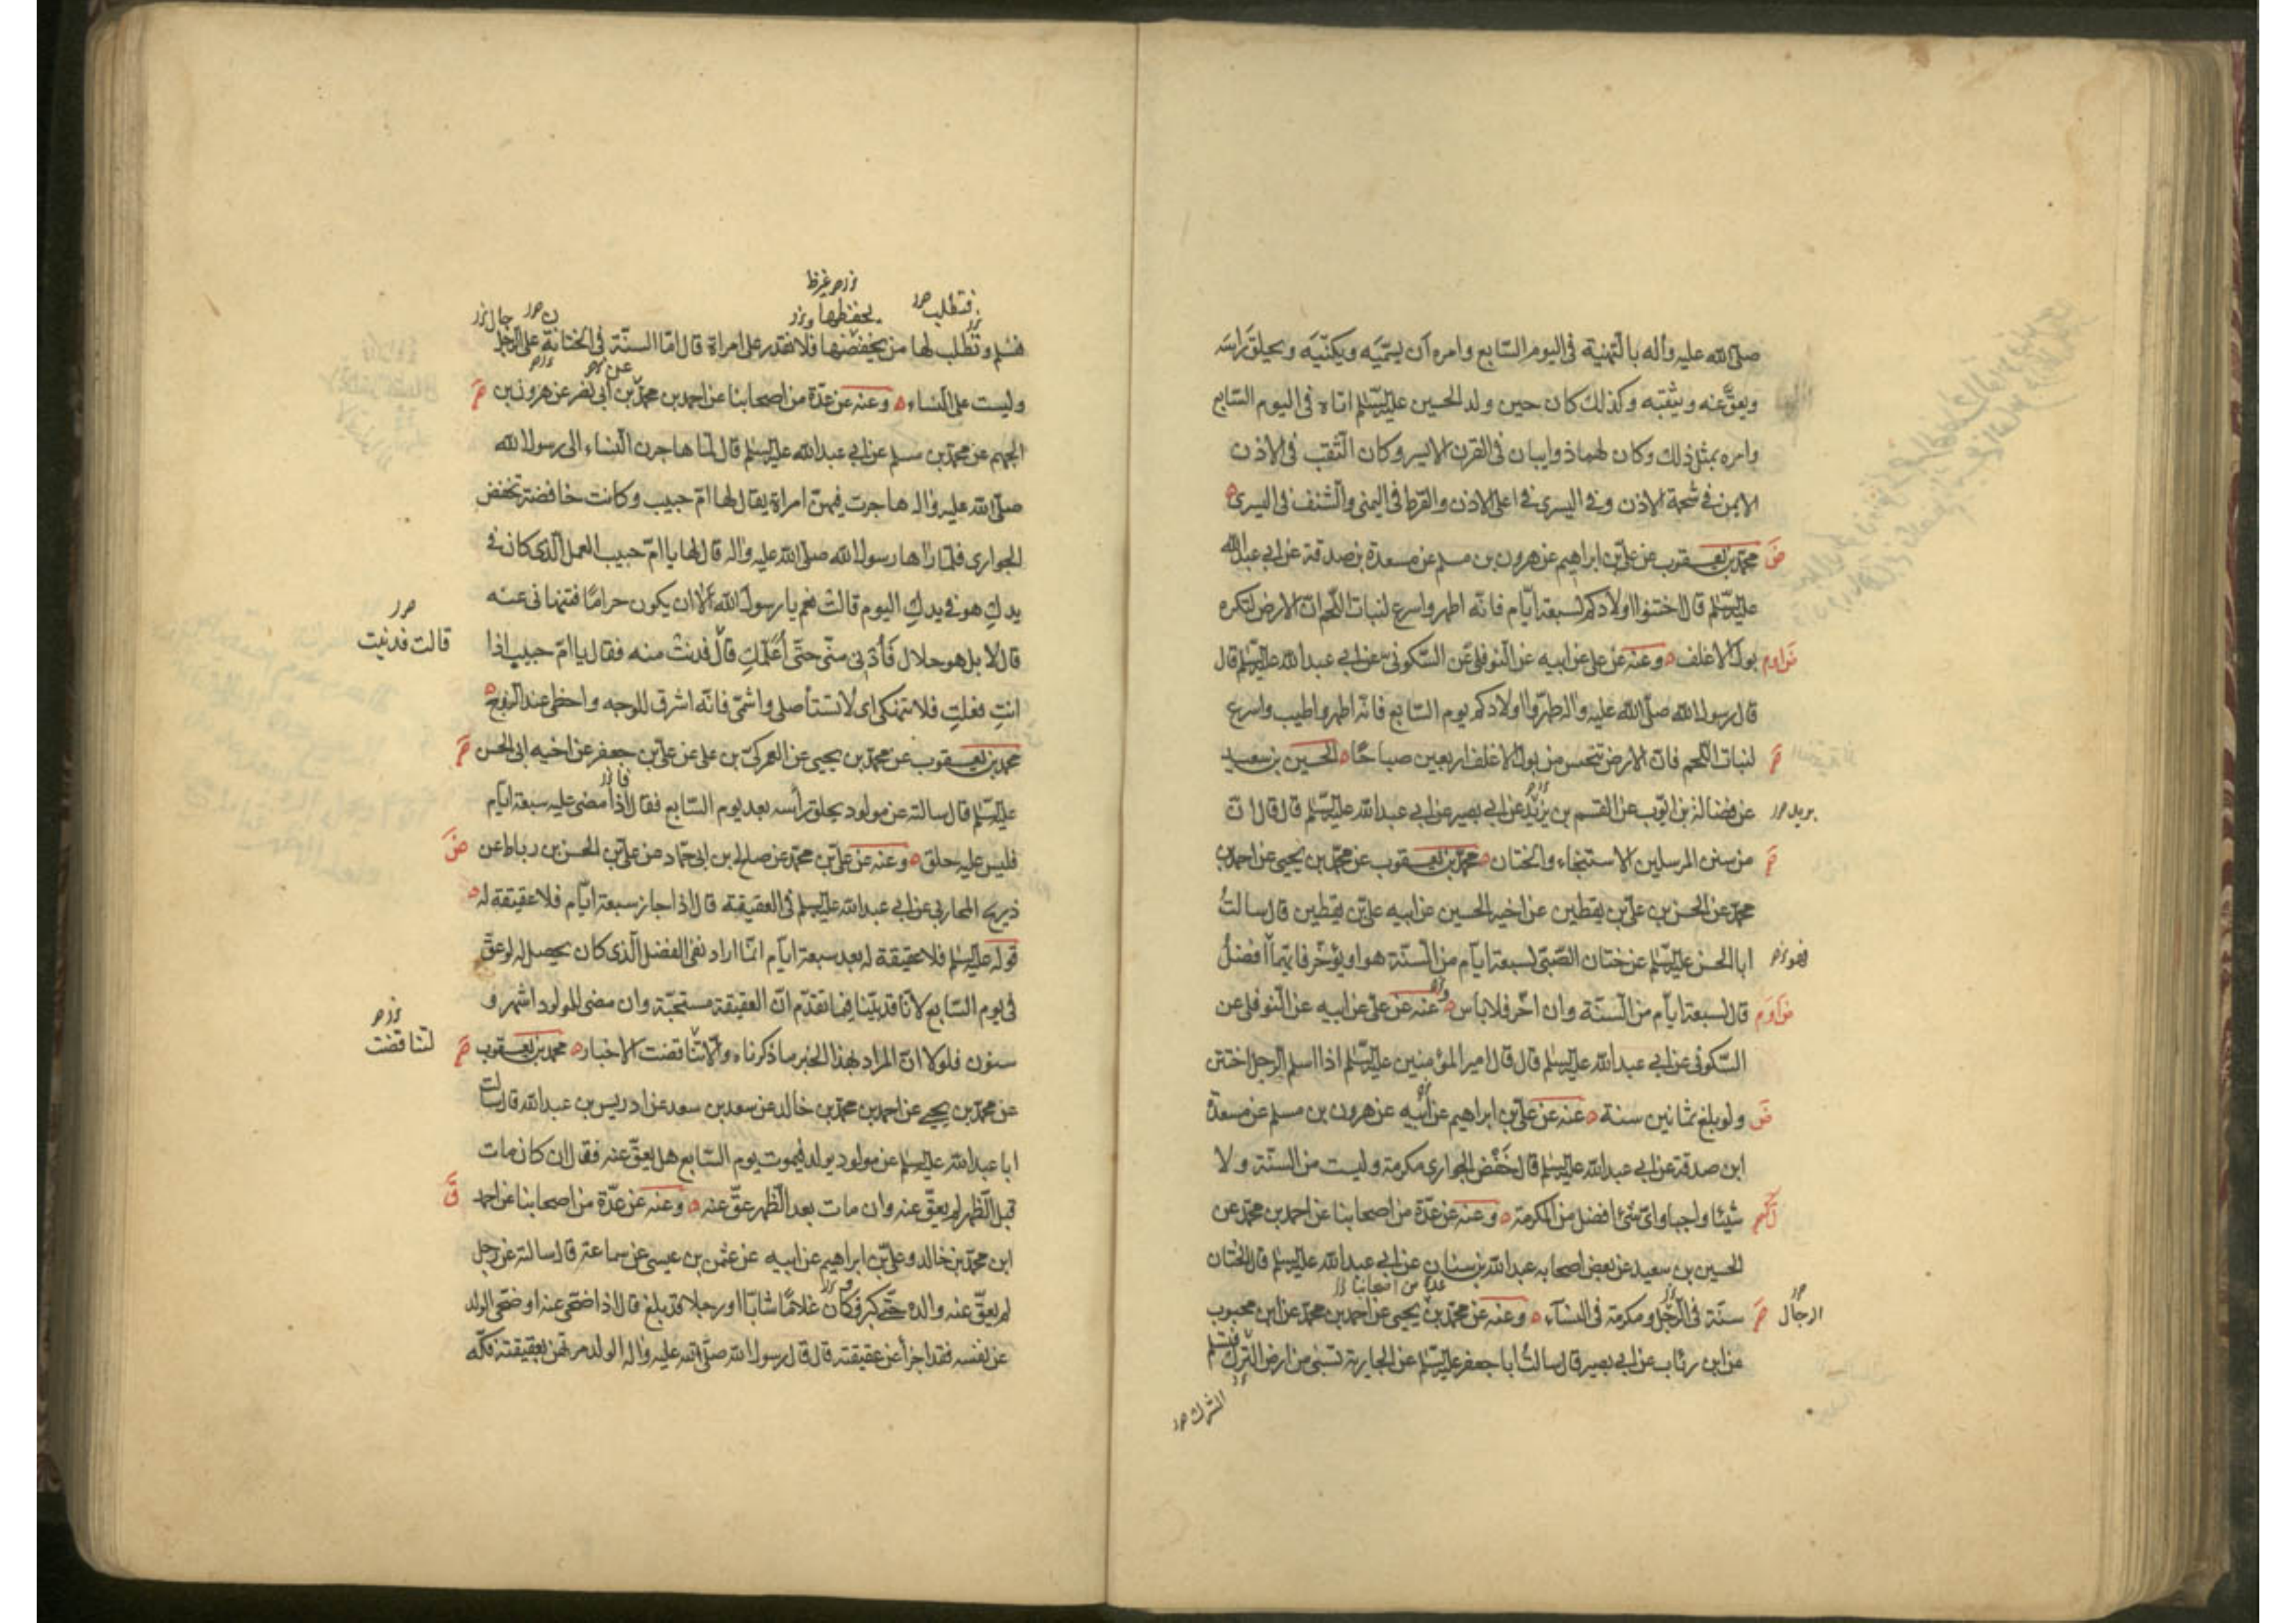 صلى الله عليه وآله بالتهنية في اليوم السابع وامره ان يسميه ويكنيه ويحلق راسه
ويعق عنه ويثقبه وكذلك كان حين ولد الحسين عليه السلم اتاه في اليوم السابع
وامره بمثل ذلك وكان لهما ذوايبان في القرن الايسر وكان الثقب في الاذن
الايمن في شحمة الاذن وفي اليسرى في اعلى الاذن والقرط في اليمنى والشنف في اليسرى
محمد بن يعقوب عن علي بن ابراهيم عن هرون بن مسلم عن مسعدة بن صدقة عن ابي عبد الله
عليه السلم قال اختنوا اولادكم لسبعة ايام فانه اطهر واسرع لنبات اللحم ان الارض لتكره
بول الاغلف وعنه عن علي عن ابيه عن النوفلي عن السكوني عن ابي عبد الله عليه السلم قال
قال رسول الله صلى الله عليه واله طهروا اولادكم يوم السابع فانه اطهر واطيب واسرع
لنبات اللحم فان الارض تنجس من بول الاغلف اربعين صباحا الحسين بن سعيد
عن فضالة بن ايوب عن القسم بن يزيد عن ابي بصير عن ابي عبد الله عليه السلم قال قال ان
بريد
من سنن المرسلين الاستنجاء والختان محمد بن يعقوب عن محمد بن يحيى عن احمد بن
محمد عن الحسن بن علي بن يقطين عن اخيه الحسين عن ابيه علي بن يقطين قال سالت
ابا الحسن عليه السلم عن ختان الصبي لسبعة ايام من السنة هو او يؤخر فايهما افضل
قال لسبعة ايام من السنة وان اخر فلا باس وعنه عن علي عن ابيه عن النوفلي عن
السكوني عن ابي عبد الله عليه السلم قال قال امير المؤمنين عليه السلم اذا اسلم الرجل اختتن
ولو بلغ ثمانين سنة عنه عن علي بن ابراهيم عن ابيه عن هرون بن مسلم عن مسعدة
ابن صدقة عن ابي عبد الله عليه السلم قال خفض الجواري مكرمة وليست من السنة ولا
شيئا واجبا واي شئ افضل من المكرمة وعنه عن عدة من اصحابنا عن احمد بن محمد عن
الحسين بن سعيد عن بعض اصحابه عبد الله بن سنان عن ابي عبد الله عليه السلم قال الختان
عدة من اصحابنا
سنة في الرجل ومكرمة في النساء وعنه عن محمد بن يحيى عن احمد بن محمد عن ابن محبوب
الرجال
عن ابن رئاب عن ابي بصير قال سالت ابا جعفر عليه السلم عن الجارية تسبى من ارض الترك فتسلم
الشرك
فتطلب
فتسلم وتطلب لها من يخفضها فلا نقدر على امراة قال اما السنة في الختانة على الرجل
وليست على النساء وعنه عن عدة من اصحابنا عن احمد بن محمد بن ابي نصر عن هرون بن
الجهم عن محمد بن مسلم عن ابي عبد الله عليه السلم قال لما هاجرن النساء الى رسول الله
صلى الله عليه واله هاجرت فيهن امراة يقال لها ام حبيب وكانت خافضة تخفض
الجواري فلما راها رسول الله صلى الله عليه واله قال لها يا ام حبيب العمل الذي كان في
يدك هو في يدك اليوم قالت نعم يا رسول الله الا ان يكون حراما فتنهاني عنه
قال لا بل هو حلال فادني مني حتى اعلمك قال فدنت منه فقال يا ام حبيب اذا
قالت فدنيت
انت فعلت فلا تنهكي اي لا تستأصلي واشمي فانه اشرق للوجه واحظى عند الزوج
محمد بن يعقوب عن محمد بن يحيى عن العمركي بن علي عن علي بن جعفر عن اخيه ابي الحسن
عليه السلم قال سالته عن مولود يحلق رأسه بعد يوم السابع فقال اذا مضى عليه سبعة ايام
فليس عليه حلق وعنه عن علي بن محمد عن صالح بن ابي حماد عن علي بن الحسن بن رباط عن
ذريح المحاربي عن ابي عبد الله عليه السلم في العقيقة قال اذا جاز سبعة ايام فلا عقيقة له
قوله عليه السلم فلا عقيقة له بعد سبعة ايام انما اراد نفي الفضل الذي كان يحصل له لو عق
في يوم السابع لانا قد بينا فيما تقدم ان العقيقة مستحبة وان مضى للمولود اشهر و
سنون فلولا ان المراد بهذا الخبر ما ذكرناه والا تناقضت الاخبار محمد بن يعقوب
لتناقضت
عن محمد بن يحيى عن احمد بن محمد بن خالد عن سعد بن سعد عن ادريس بن عبد الله قال سالت
ابا عبد الله عليه السلم عن مولود يولد فيموت يوم السابع هل يعق عنه فقال ان كان مات
قبل الظهر لم يعق عنه وان مات بعد الظهر عق عنه وعنه عن عدة من اصحابنا عن احمد
ابن محمد بن خالد وعلي بن ابراهيم عن ابيه عن عثمن بن عيسى عن سماعة قال سالته عن رجل
لم يعق عنه والده حتى كبر فكان غلاما شابا او رجلا قد بلغ قال اذا ضحى عنه او ضحى الولد
عن نفسه فقد اجزأ عن عقيقته قال قال رسول الله صلى الله عليه واله الولد مرتهن بعقيقته فكه